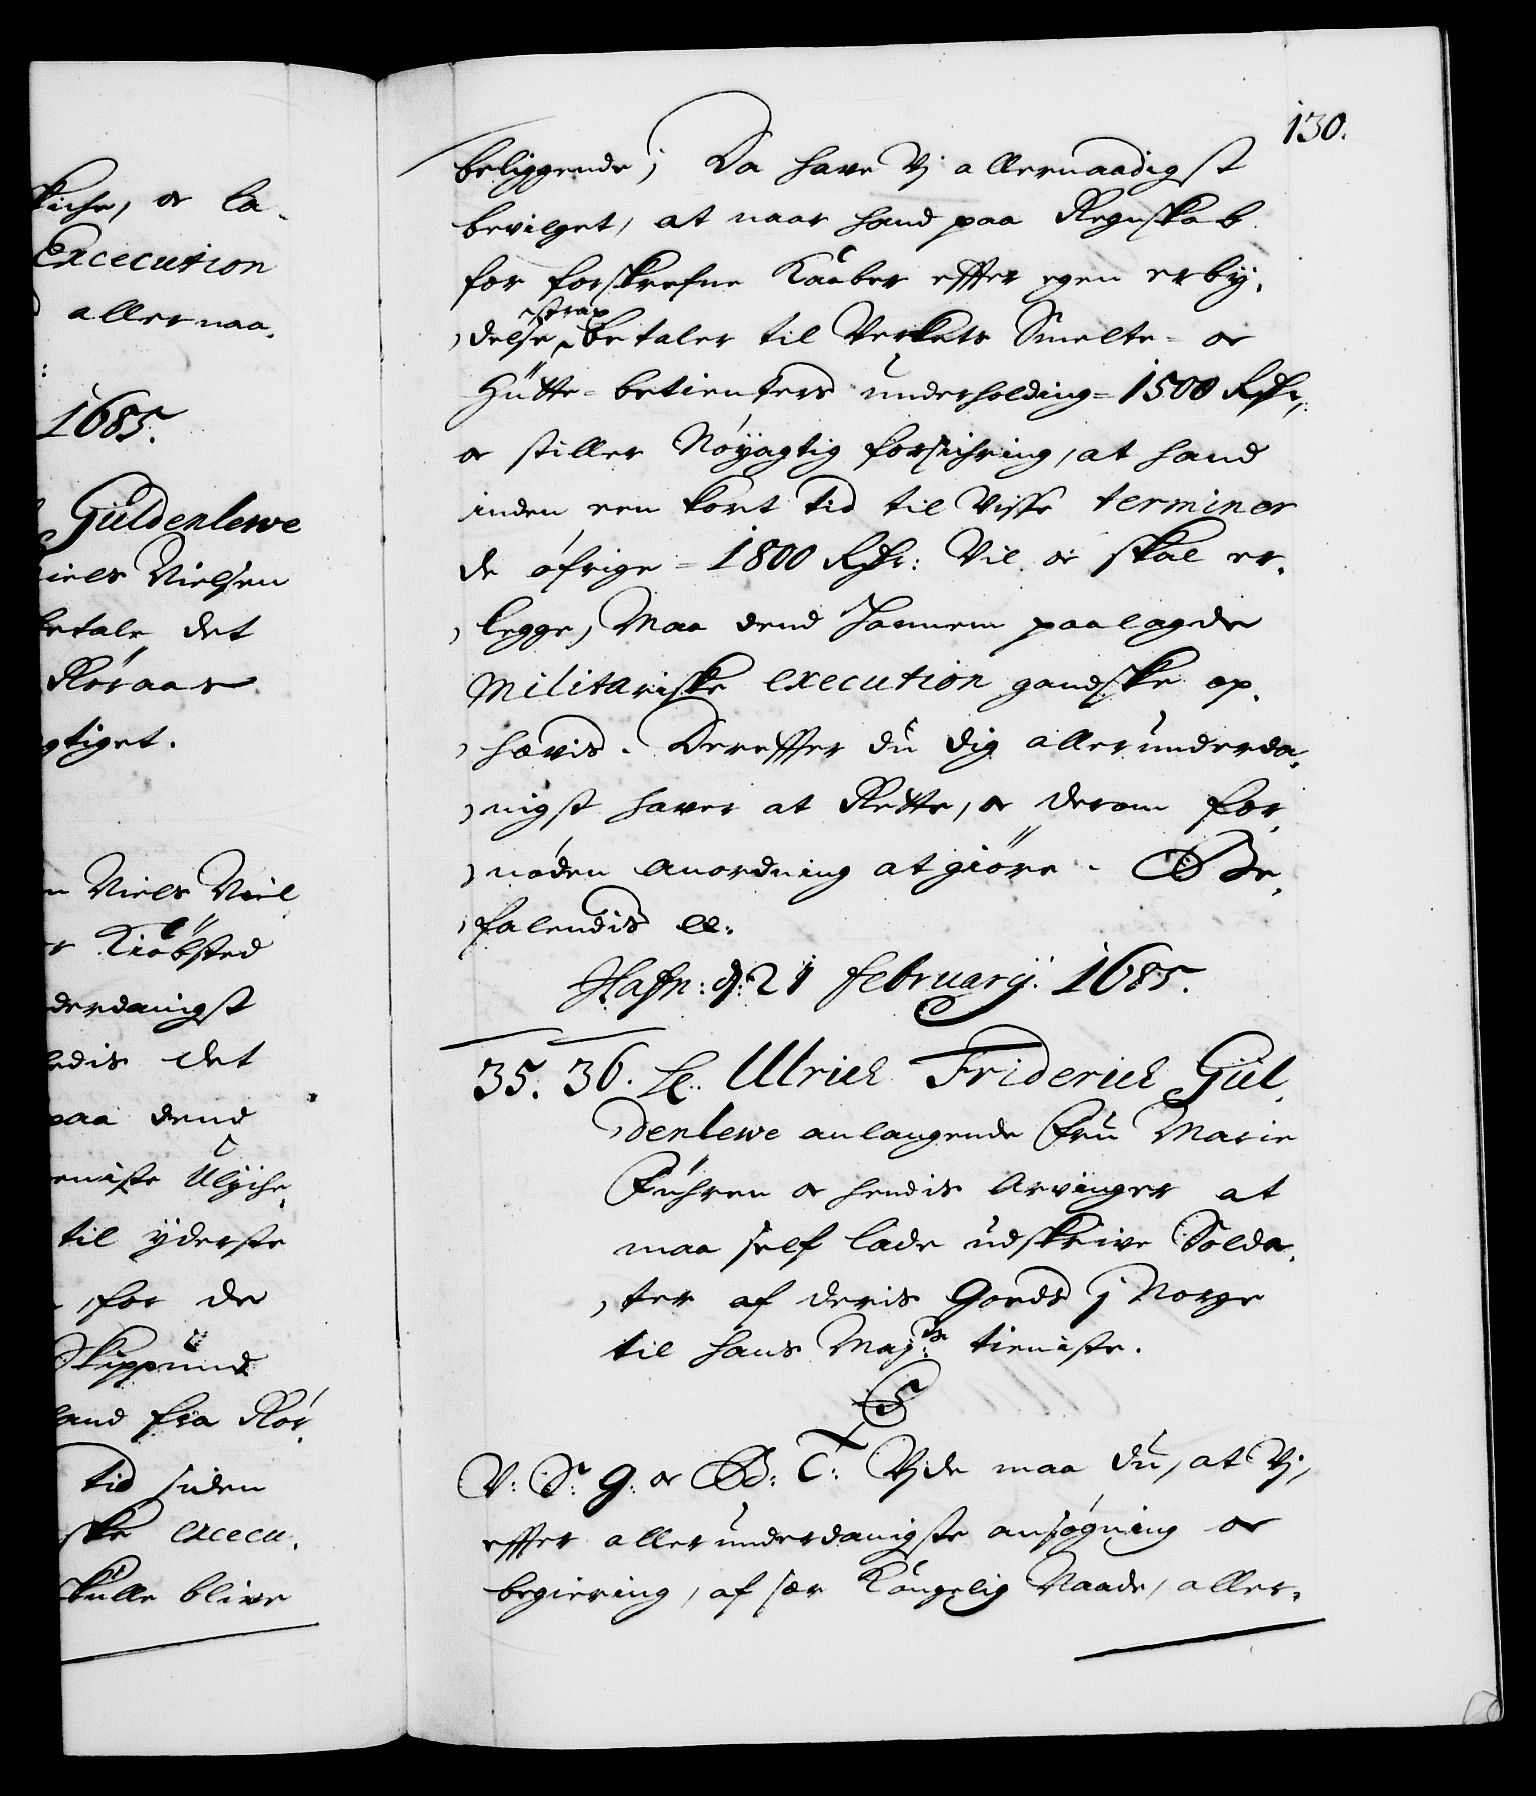 kiche, oc la-
Excecution
allernaa-
1685.
Güldenlewe
Niels Nielsen
betale det
Röraas
gtiget.
n Niels Niel
r Kiöbsted
derdanigst
ledis det
paa dend
eniste Ulÿche
til ÿderste
for de
Skippund
land fra Rör
tid siden
ske execu-
skulle blive
130.
beliggende; Da have Vj allernaadigst
bevilget, at naar hand paa Regnskab
for forskrefne Kaaber effter egen erbÿ-
delse strax betaler til Verkets Smelte- oc
Hütte-betienters underholding = 1500 Rdr,
oc stiller Nöÿagtig forsichring, at hand
inden een kort tid til Visse terminer
de öfrige = 1800 Rdr: Vil oc skal er-
legge, Maa dend hannem paalagde
Militariske execution gandske op-
hævis. Dereffter du dig allerunderda-
nigst haver at Rette, oc derom for-
nöden anordning at giöre. Be-
falendis etc.
Hafn: d: 21 februarÿ. 1685.
35. 36. Ulrich Friderich Gül-
denlewe anlangende Fru Marie
Führen oc hendis Arvinger at
maa self lade udskrive Solda-
ter af deris Gords j Norge
til hans Maj:ts tieniste.
C5
V: S: G: oc B: T: Vjde maa du, at Vj,
effter allerunderdanigste ansögning oc
begiering, af sær Kongelig Naade, aller-